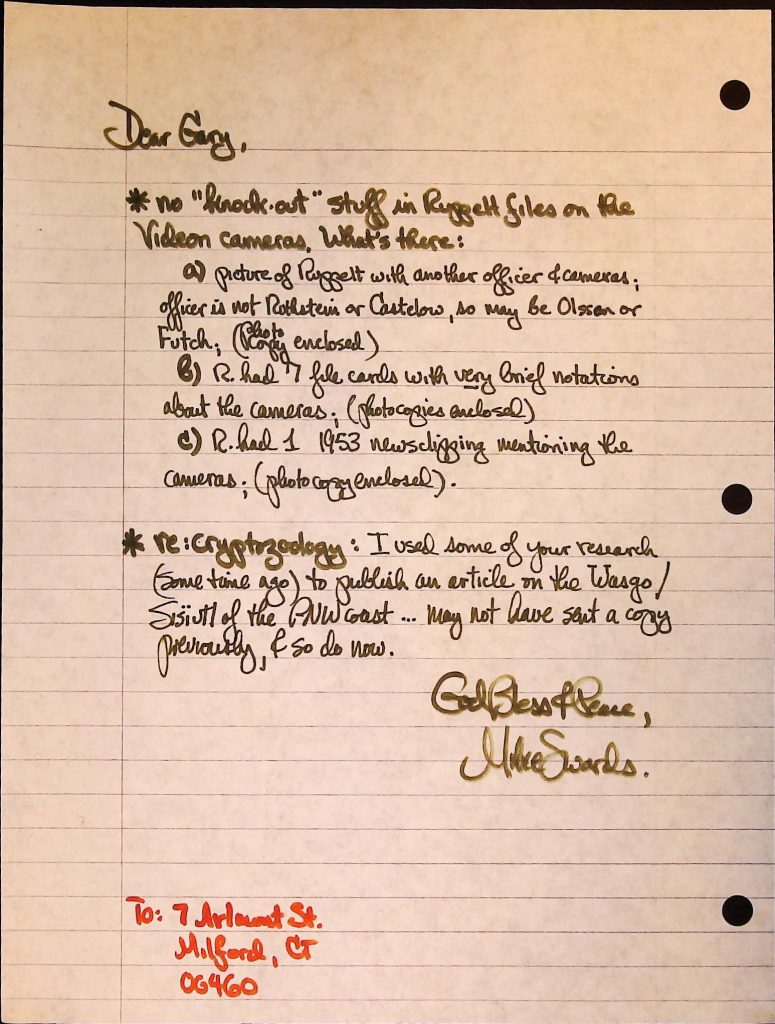 Dear Gary,
* no "knock-out" stuff in Ruppelt files on the
Videon cameras. What's there:
a) picture of Ruppelt with another officer & cameras;
officer is not Rothstein or Castelow, so may be Olsson or
Futch; (Photo copy enclosed)
b) R. had 7 file cards with very brief notations
about the cameras; (photocopies enclosed)
c) R. had 1 1953 newsclipping mentioning the
cameras; (photocopy enclosed).
* re: cryptozoology: I used some of your research
(some time ago) to publish an article on the Wasgo/
Sisiutl of the PNW coast ... may not have sent a copy
previously, & so do now.
God Bless & Peace,
Mike Swords.
To: 7 Arlmont St.
Milford, CT
06460